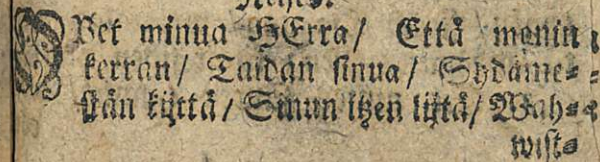 OPet minua HErra/ Että monin
kerran/ Taidan sinua/ Sydäme⸗
stän kijttä/ Sinun itzen lijtä/ Wah⸗
wist⸗